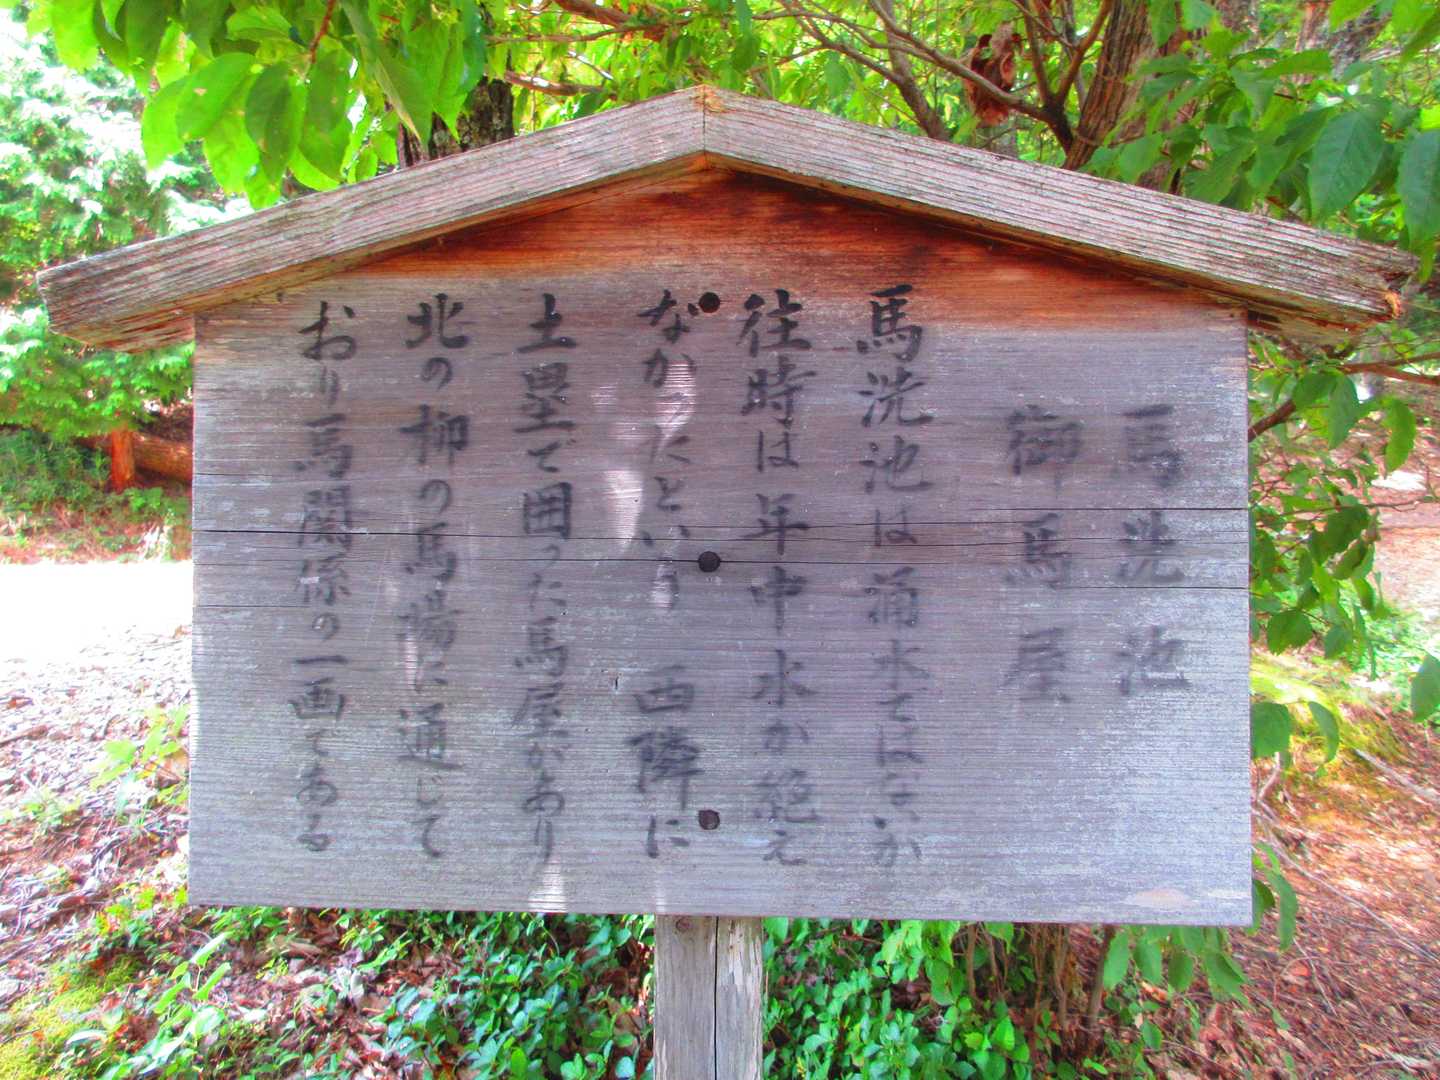 馬洗池
御馬屋
馬洗池は湧水ではないが
往時は年中水が絶え
なかったという 西隣に
土塁で囲った馬屋があり
北の柳の馬場に通じて
おり馬関係の一画である